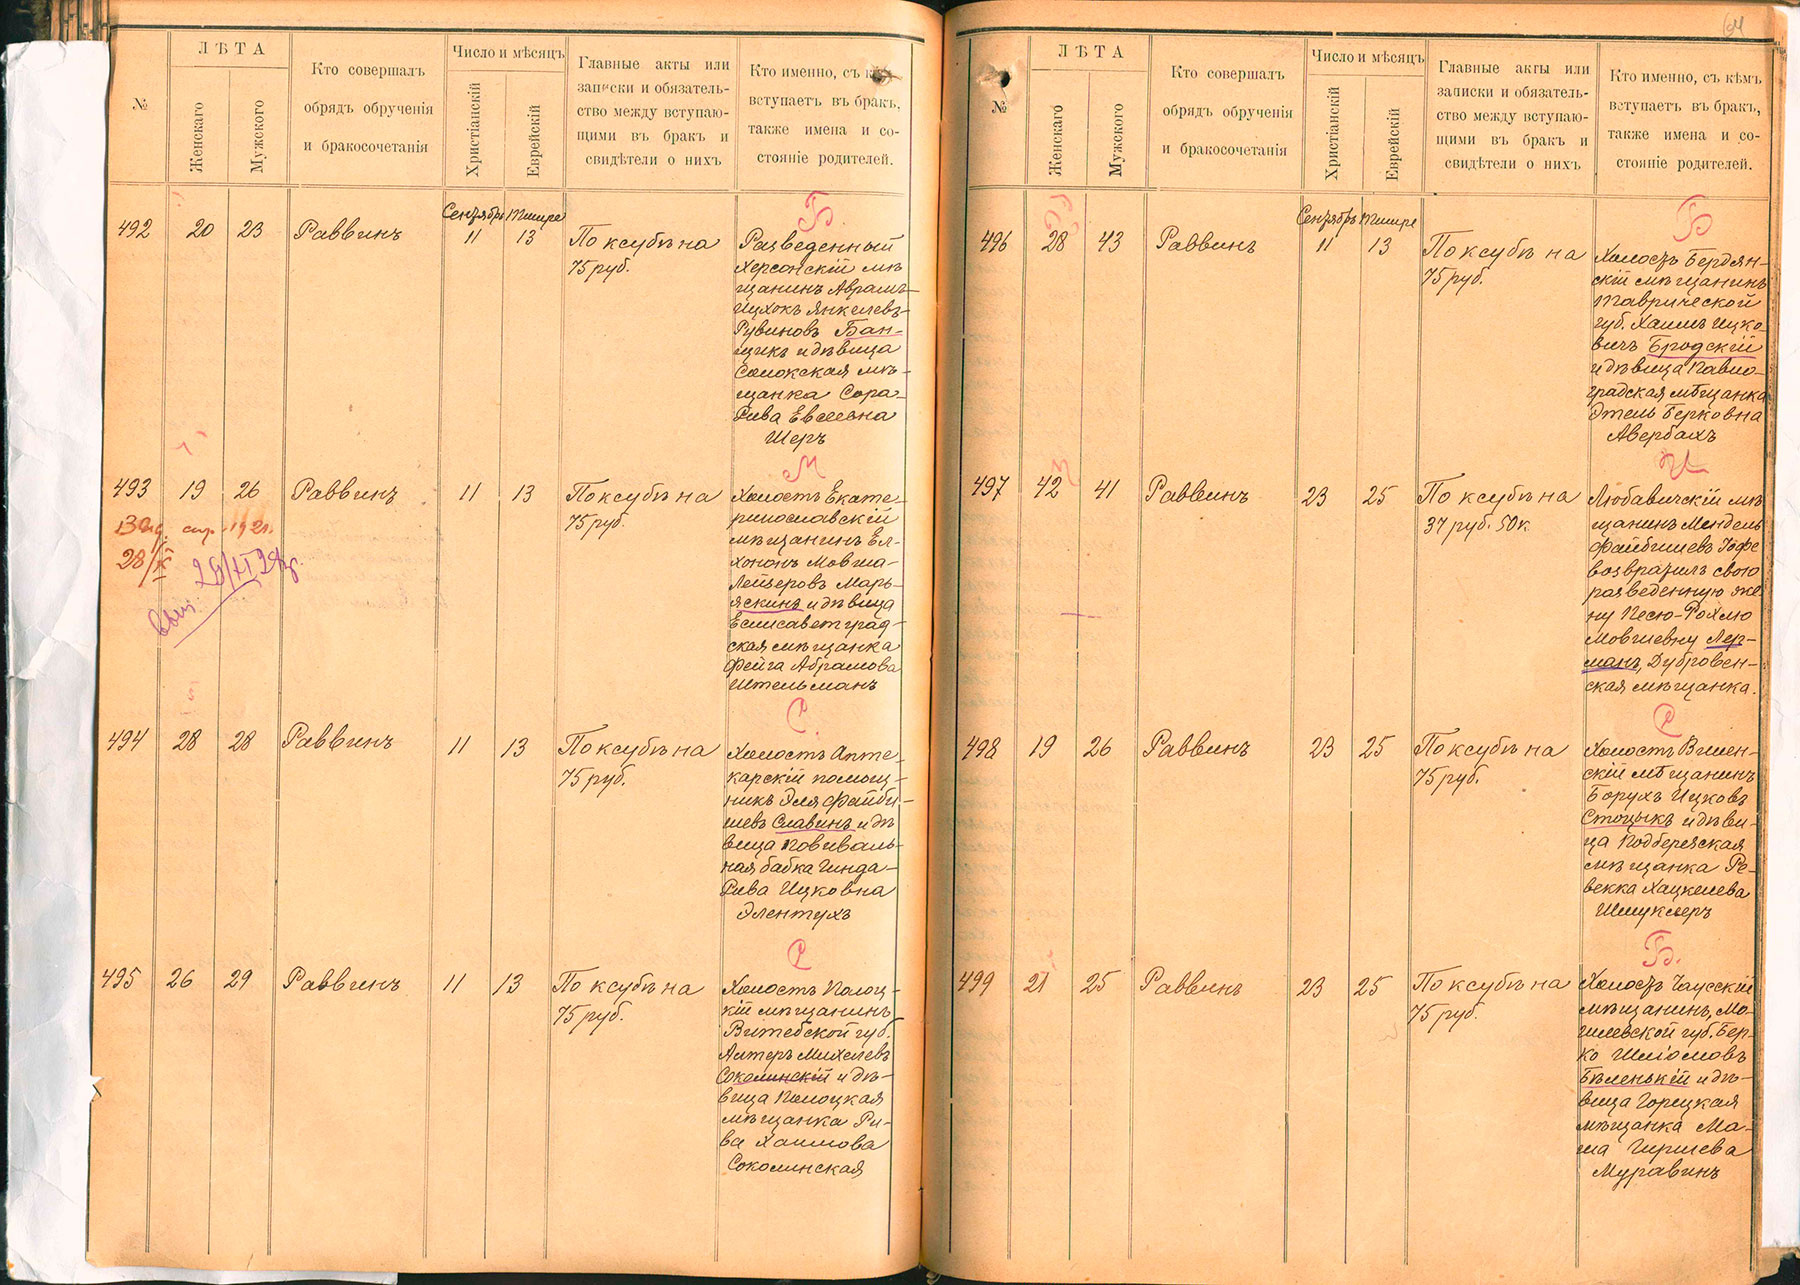 ЛѢТА
№
Женскаго
Мужского
Кто совершалъ
обрядъ обрученія
и бракосочетанія
Число и мѣсяцъ
Христіанскій
Еврейскій
Главные акты или
записки и обязатель-
ство между вступаю-
щими въ бракъ и
свидѣтели о нихъ
Кто именно, съ кѣмъ
вступаетъ въ бракъ,
также имена и со-
стояніе родителей.
Сентябрь Тишре
Б.
492 20 23 Раввинъ 11 13 По ксубѣ на
75 руб.
Разведенный
Херсонскій мѣ
щанинъ Аврамъ-
Ицхокъ Янкелевъ-
Рувиновъ Бан-
щикъ и дѣвица
Солокская мѣ-
щанка Сора-
Рива Евсеевна
Шеръ
М
493 19 26 Раввинъ 11 13 По ксубѣ на
75 руб.
Выд. спр. 1921.
28/X
Холостъ Екате-
ринославскій
мѣщанинъ Ел-
хононъ Мовша-
Лейзеровъ Марь-
яскинъ и дѣвица
Елисаветград-
ская мѣщанка
Фейга Абрамова
Штельманъ
С.
494 28 28 Раввинъ 11 13 По ксубѣ на
75 руб.
Холостъ Апте-
карскій помощ-
никъ Эля Файби-
шевъ Славинъ и дѣ
вица повиваль-
ная бабка Гинда-
Рива Ицковна
Элентухъ
С
495 26 29 Раввинъ 11 13 По ксубѣ на
75 руб.
Холостъ Полоц-
кій мѣщанинъ
Витебской губ.
Алтеръ Михелевъ
Соколинскій и дѣ-
вица Полоцкая
мѣщанка Ри-
ва Хаимова
Соколинская
64
ЛѢТА
№
Женскаго
Мужского
Кто совершалъ
обрядъ обрученія
и бракосочетанія
Число и мѣсяцъ
Христіанскій
Еврейскій
Главные акты или
записки и обязатель-
ство между вступаю-
щими въ бракъ и
свидѣтели о нихъ
Кто именно, съ кѣмъ
вступаетъ въ бракъ,
также имена и со-
стояніе родителей.
Сентябрь Тишре
Б
496 28 43 Раввинъ 11 13 По ксубѣ на
75 руб.
Холостъ Бердян-
скій мѣщанинъ
Таврической
губ. Хаимъ Ицко-
вичъ Бродскій
и дѣвица Павло-
градская мѣщанка
Этель Берковна
Авербахъ
497 42 41 Раввинъ 23 25 По ксубѣ на
37 руб. 50 к.
Любавичскій мѣ
щанинъ Мендель
Файбишевъ Іоффе
возвратилъ свою
разведенную же
ну Песю-Рохлю
Мовшевну Лер-
манъ, Дубровен-
ская мѣщанка.
С
498 19 26 Раввинъ 23 25 По ксубѣ на
75 руб.
Холостъ Вилен-
скій мѣщанинъ
Борухъ Ицковъ
Стоцыкъ и дѣви-
ца Подберезская
мѣщанка Ре-
векка Хацкелева
Шмуклеръ
Б.
499 21 25 Раввинъ 23 25 По ксубѣ на
75 руб.
Холостъ Чаусскій
мѣщанинъ, Мо-
гилевской губ. Бер-
ко Шліомовъ
Бѣленькій и дѣ-
вица Горецкая
мѣщанка Ма-
ша Гиршева
Муравинъ